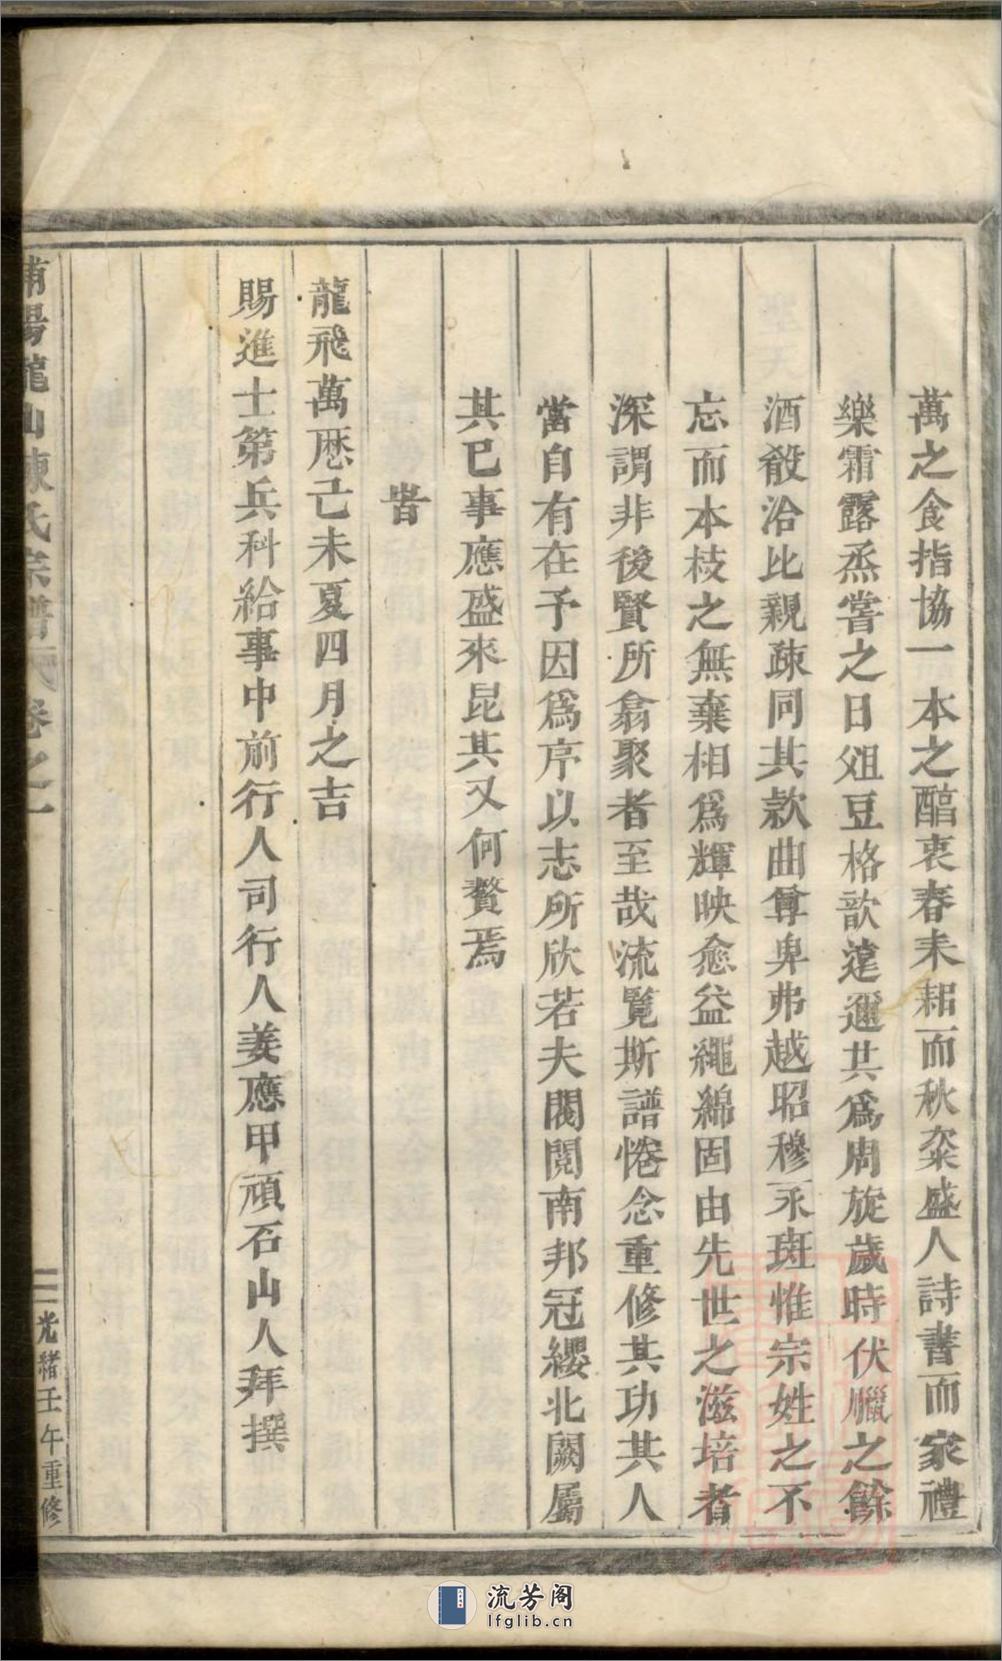 萬之食指協一本之醕衷春耒耜而秋粢盛人詩書而家禮
樂霜露烝嘗之日俎豆格歆遠邇共爲周旋歲時伏臘之餘
酒殽洽比親疎同其款曲尊卑弗越昭穆永斑惟宗姓之不
忘而本枝之無棄相爲輝映愈益繩綿固由先世之滋培者
深謂非後賢所翕聚者至哉流覽斯譜惓念重修其功其人
當自有在予因爲序以志所欣若夫閥閱南邦冠纓北闕屬
其已事應盛來昆其又何贅焉
旹
龍飛萬厯己未夏四月之吉
賜進士第兵科給事中前行人司行人姜應甲頑石山人拜撰
浦陽龍山陳氏宗譜 卷之一
二 光緒壬午重修
流芳阁
lfglib.cn